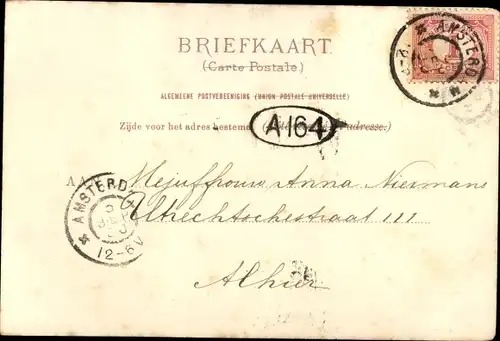 BRIEFKAART.
(Carte Postale.)
AMSTERDAM
ALGEMEENE POSTVEREENIGING (UNION POSTALE UNIVERSELLE)
Zijde voor het adres bestemd.
A164
AMSTERD
12-6V
Mejuffrouw Anna Niermans
Utrechtschestraat 111
Alhier